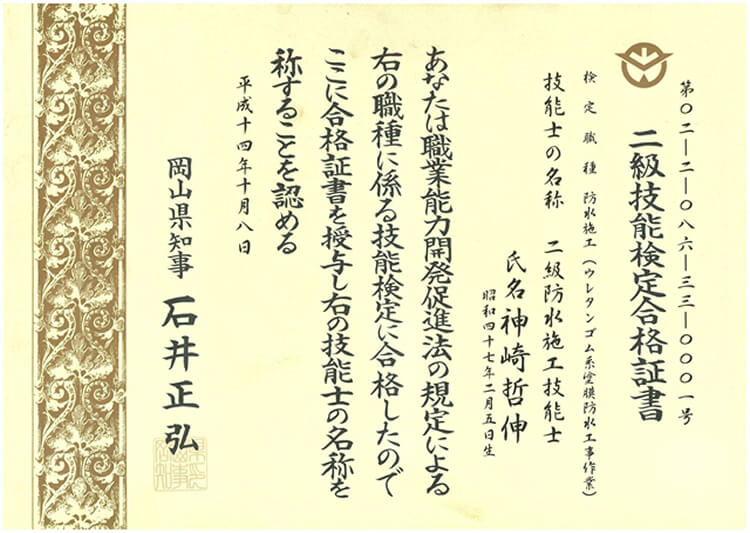 第〇二―二―〇八六―三三―〇〇〇一号
二級技能検定合格証書
検定職種 防水施工(ウレタンゴム系塗膜防水工事作業)
技能士の名称 二級防水施工技能士
氏名 神崎哲伸
昭和四十七年二月五日生
あなたは職業能力開発促進法の規定による
右の職種に係る技能検定に合格したので
ここに合格証書を授与し右の技能士の名称を
称することを認める
平成十四年十月八日
岡山県知事 石井正弘